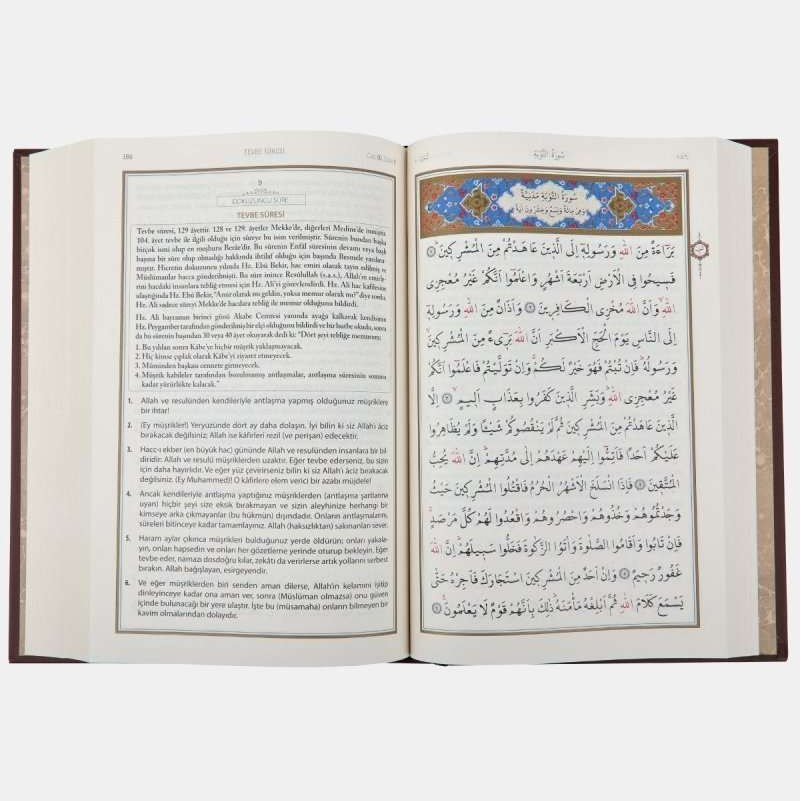 186
TEVBE SÛRESİ
9
DOKUZUNCU SÛRE
TEVBE SÛRESİ
Tevbe sûresi, 129 âyettir. 128 ve 129. âyetler Mekke'de, diğerleri Medine'de inmiştir.
104. âyet tevbe ile ilgili olduğu için sûreye bu isim verilmiştir. Sûrenin bundan başka
birçok ismi olup en meşhuru Berâe'dir. Bu sûrenin Enfâl sûresinin devamı veya başlı
başına bir sûre olup olmadığı hakkında ihtilaf olduğu için başında Besmele yazılma-
mıştır. Hicretin dokuzuncu yılında Hz. Ebû Bekir, hac emiri olarak tayin edilmiş ve
Müslümanlar hacca gönderilmişti. Bu sûre inince Resûlullah (s.a.s.), Allah'ın emirle-
rini hacdaki insanlara tebliğ etmesi için Hz. Ali'yi görevlendirdi. Hz. Ali hac kafilesine
ulaştığında Hz. Ebû Bekir, "Amir olarak mı geldin, yoksa memur olarak mı?" diye sordu,
Hz. Ali sadece sûreyi Mekke'de hacılara tebliğ ile memur olduğunu bildirdi.
Hz. Ali bayramın birinci günü Akabe Cemresi yanında ayağa kalkarak kendisinin
Hz. Peygamber tarafından gönderilmiş bir elçi olduğunu bildirdi ve bir hutbe okudu, sonra
da bu sûrenin başından 30 veya 40 âyet okuyarak dedi ki: "Dört şeyi tebliğe memurum:
1. Bu yıldan sonra Kâbe'ye hiçbir müşrik yaklaşmayacak.
2. Hiç kimse çıplak olarak Kâbe'yi ziyaret etmeyecek.
3. Müminden başkası cennete girmeyecek.
4. Müşrik kabileler tarafından bozulmamış antlaşmalar, antlaşma süresinin sonuna
kadar yürürlükte kalacak."
1. Allah ve resulünden kendileriyle antlaşma yapmış olduğunuz müşriklere
bir ihtar!
2. (Ey müşrikler!) Yeryüzünde dört ay daha dolaşın. İyi bilin ki siz Allah'ı âciz
bırakacak değilsiniz; Allah ise kâfirleri rezil (ve perişan) edecektir.
3. Hacc-ı ekber (en büyük hac) gününde Allah ve resulünden insanlara bir bil-
diridir: Allah ve resulü müşriklerden uzaktır. Eğer tevbe ederseniz, bu sizin
için daha hayırlıdır. Ve eğer yüz çevirirseniz bilin ki siz Allah'ı âciz bırakacak
değilsiniz. (Ey Muhammed)! O kâfirlere elem verici bir azabı müjdele!
4. Ancak kendileriyle antlaşma yaptığınız müşriklerden (antlaşma şartlarına
uyan) hiçbir şeyi size eksik bırakmayan ve sizin aleyhinize herhangi bir
kimseye arka çıkmayanlar (bu hükmün) dışındadır. Onların antlaşmalarını,
süreleri bitinceye kadar tamamlayınız. Allah (haksızlıktan) sakınanları sever.
5. Haram aylar çıkınca müşrikleri bulduğunuz yerde öldürün; onları yakala-
yın, onları hapsedin ve onları her gözetleme yerinde oturup bekleyin. Eğer
tevbe eder, namazı dosdoğru kılar, zekâtı da verirlerse artık yollarını serbest
bırakın. Allah bağışlayan, esirgeyendir.
6. Ve eğer müşriklerden biri senden aman dilerse, Allah'ın kelamını işitip
dinleyinceye kadar ona aman ver, sonra (Müslüman olmazsa) onu güven
içinde bulunacağı bir yere ulaştır. İşte bu (müsamaha) onların bilmeyen bir
kavim olmalarından dolayıdır.
سُورَةُ التَّوْبَةِ
سُورَةُ التَّوْبَةِ مَدَنِيَّةٌ
وَهِيَ مِائَةٌ وَتِسْعٌ وَعِشْرُونَ آيَةً
بَرَٓاءَةٌ مِنَ اللّٰهِ وَرَسُولِه۪ٓ اِلَى الَّذ۪ينَ عَاهَدْتُمْ مِنَ الْمُشْرِك۪ينَۜ ﴿١﴾
فَس۪يحُوا فِي الْاَرْضِ اَرْبَعَةَ اَشْهُرٍ وَاعْلَمُٓوا اَنَّكُمْ غَيْرُ مُعْجِزِي
اللّٰهِۙ وَاَنَّ اللّٰهَ مُخْزِي الْكَافِر۪ينَ ﴿٢﴾ وَاَذَانٌ مِنَ اللّٰهِ وَرَسُولِه۪ٓ
اِلَى النَّاسِ يَوْمَ الْحَجِّ الْاَكْبَرِ اَنَّ اللّٰهَ بَر۪ٓيءٌ مِنَ الْمُشْرِك۪ينَۙ
وَرَسُولُهُۜ فَاِنْ تُبْتُمْ فَهُوَ خَيْرٌ لَكُمْۚ وَاِنْ تَوَلَّيْتُمْ فَاعْلَمُٓوا اَنَّكُمْ
غَيْرُ مُعْجِزِي اللّٰهِۜ وَبَشِّرِ الَّذ۪ينَ كَفَرُوا بِعَذَابٍ اَل۪يمٍۙ ﴿٣﴾ اِلَّا
الَّذ۪ينَ عَاهَدْتُمْ مِنَ الْمُشْرِك۪ينَ ثُمَّ لَمْ يَنْقُصُوكُمْ شَيْـًٔا وَلَمْ يُظَاهِرُوا
عَلَيْكُمْ اَحَدًا فَاَتِمُّٓوا اِلَيْهِمْ عَهْدَهُمْ اِلٰى مُدَّتِهِمْۜ اِنَّ اللّٰهَ يُحِبُّ
الْمُتَّق۪ينَ ﴿٤﴾ فَاِذَا انْسَلَخَ الْاَشْهُرُ الْحُرُمُ فَاقْتُلُوا الْمُشْرِك۪ينَ حَيْثُ
وَجَدْتُمُوهُمْ وَخُذُوهُمْ وَاحْصُرُوهُمْ وَاقْعُدُوا لَهُمْ كُلَّ مَرْصَدٍۚ
فَاِنْ تَابُوا وَاَقَامُوا الصَّلٰوةَ وَاٰتَوُا الزَّكٰوةَ فَخَلُّوا سَب۪يلَهُمْۜ اِنَّ اللّٰهَ
غَفُورٌ رَح۪يمٌ ﴿٥﴾ وَاِنْ اَحَدٌ مِنَ الْمُشْرِك۪ينَ اسْتَجَارَكَ فَاَجِرْهُ حَتّٰى
يَسْمَعَ كَلَامَ اللّٰهِ ثُمَّ اَبْلِغْهُ مَأْمَنَهُۜ ذٰلِكَ بِاَنَّهُمْ قَوْمٌ لَا يَعْلَمُونَ۟ ﴿٦﴾